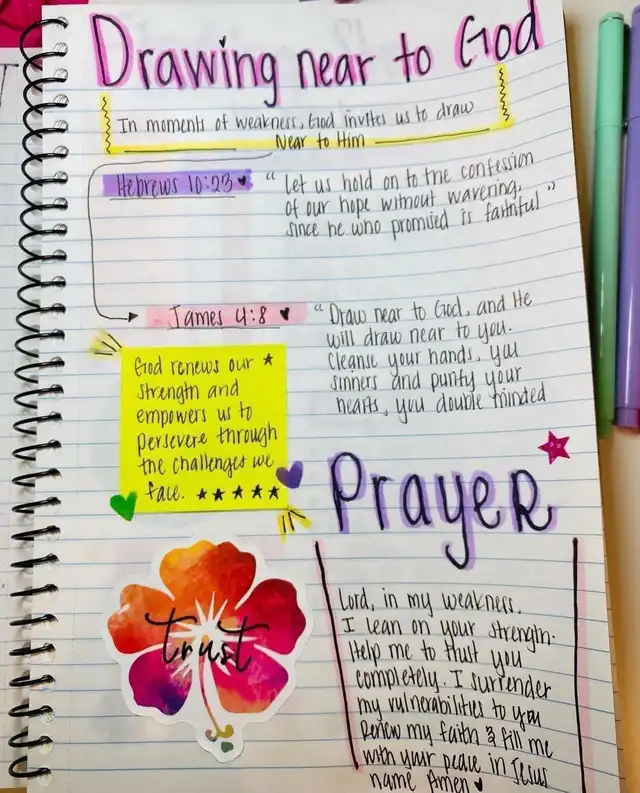 Drawing near to God
In moments of weakness, God invites us to draw
Near to Him
Hebrews 10:23 ♥
“ Let us hold on to the confession
of our hope without wavering,
since he who promised is faithful ”
James 4:8 ♥
“ Draw near to God, and He
will draw near to you.
Cleanse your hands, you
sinners and purify your
hearts, you double minded
God renews our ★
strength and
empowers us to
persevere through
the challenges we
face. ★★★★★
Prayer
trust
Lord, in my weakness.
I lean on your strength.
Help me to trust you
completely. I surrender
my vulnerabilities to you
Renew my faith & fill me
with your peace in Jesus
name Amen ♥